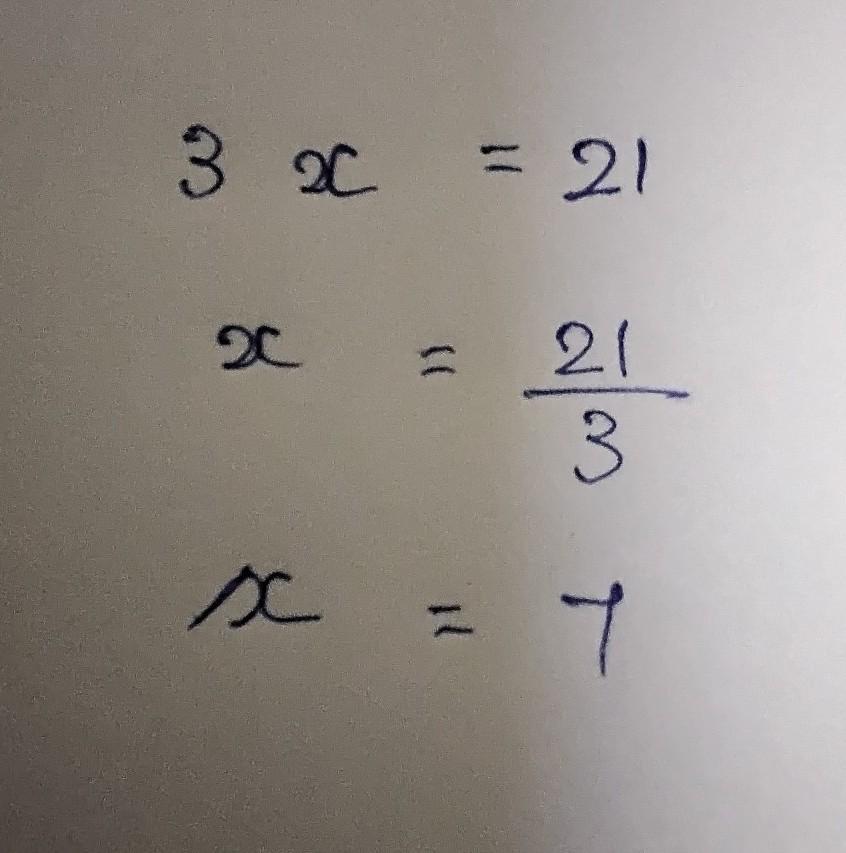 3 x = 21
x = 21/3
x = 7